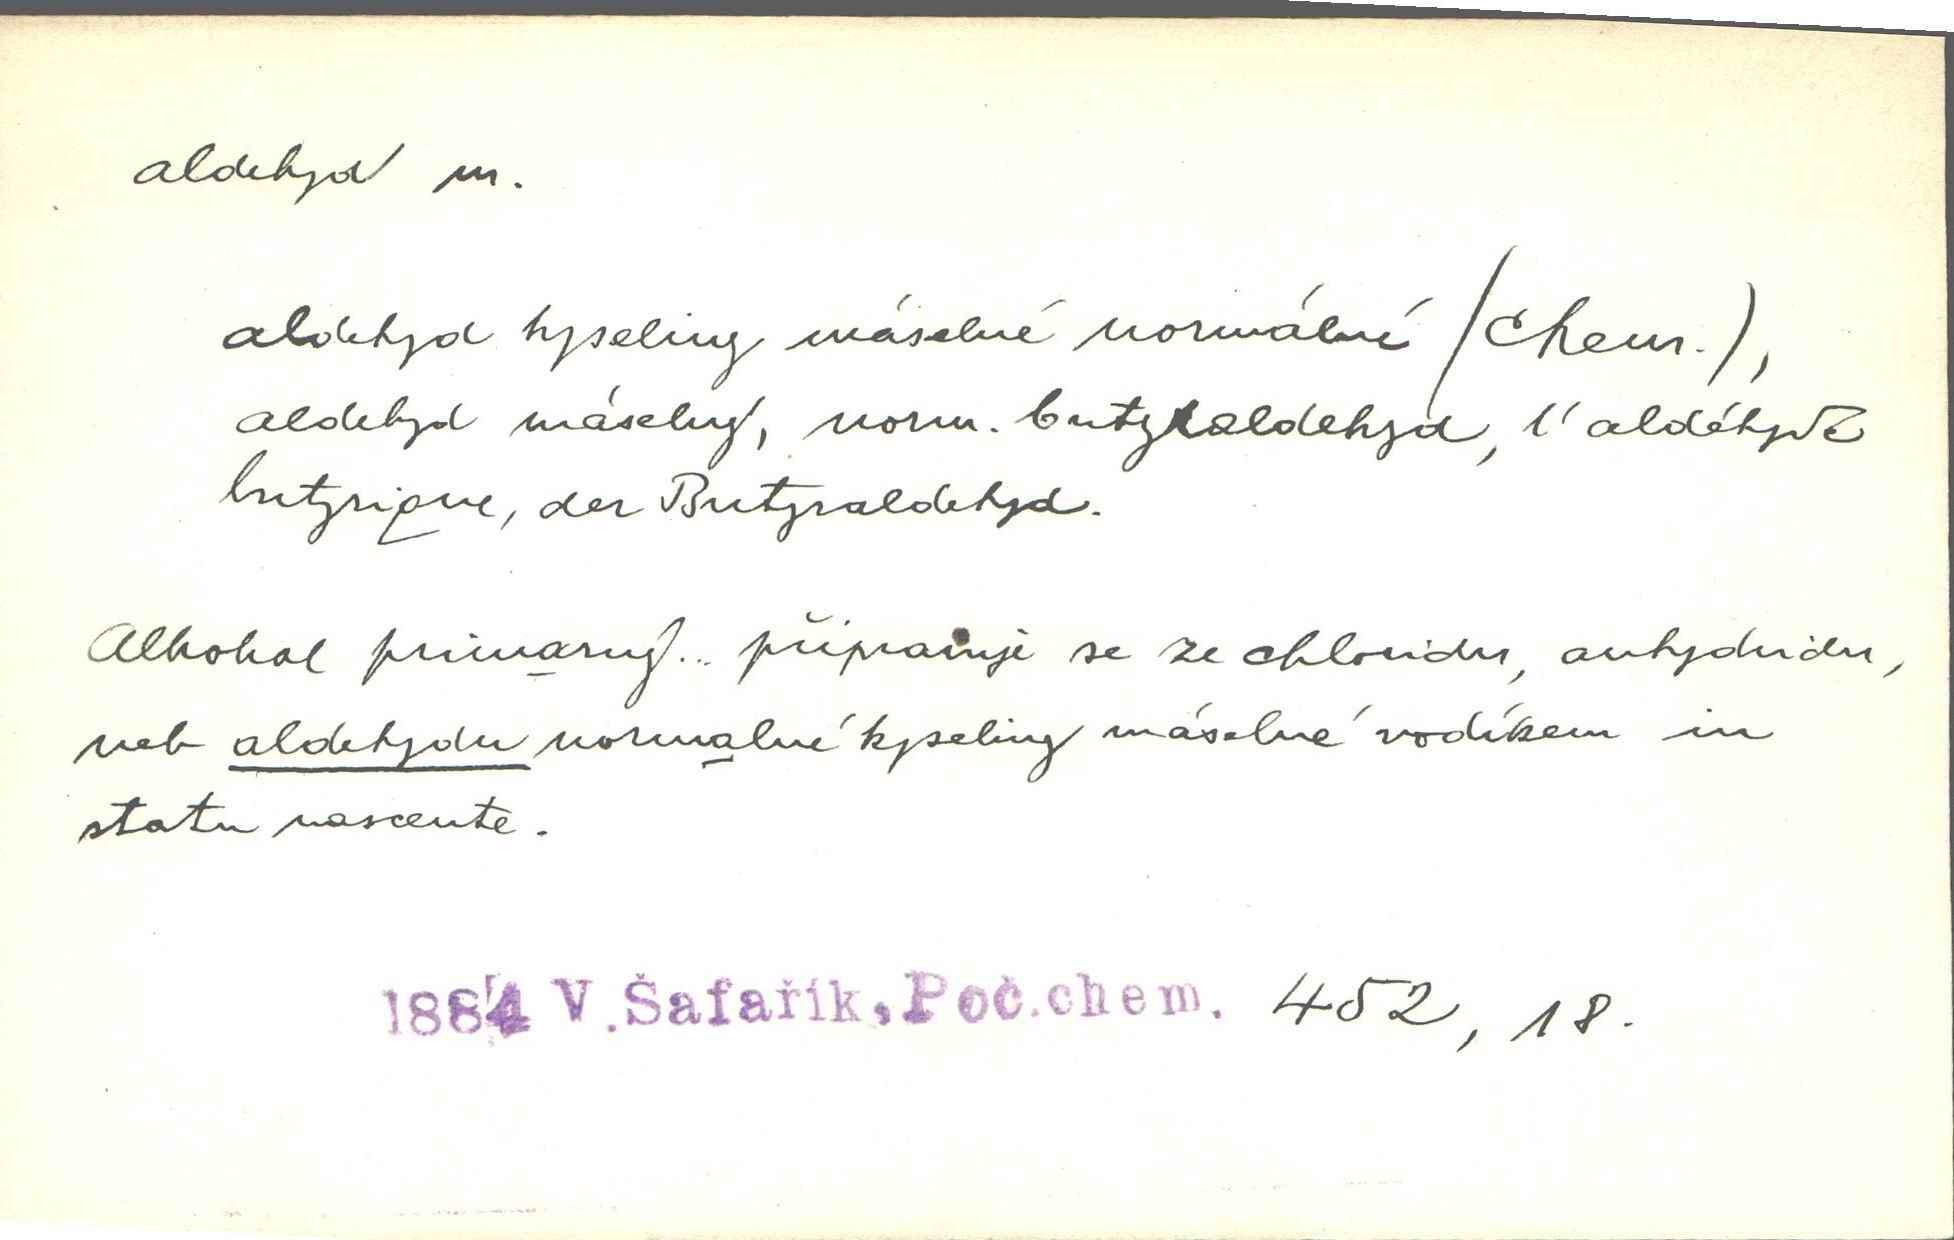 aldehyd m.
aldehyd kyseliny máselné normálné (Chem.),
aldehyd máselný, norm. butyraldehyd, l'aldéhyde
butyrique, der Butyraldehyd.
Alkohol primarný... připravuje se ze chloridu, anhydridu,
neb aldehydu normalné kyseliny máselné vodíkem in
statu nascente.
1884 V. Šafařík, Poč. chem. 452, 18.